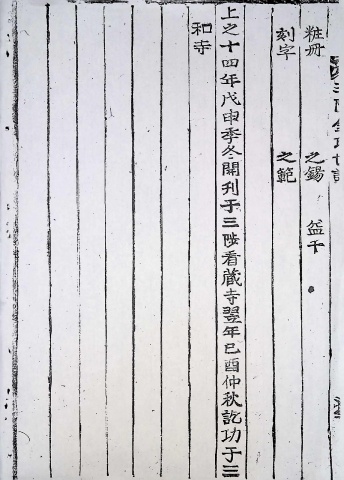 粧冊　之錫　益千
刻字　之範
上之十四年戊申季冬開刊于三陟看藏寺翌年己酉仲秋訖功于三
和寺